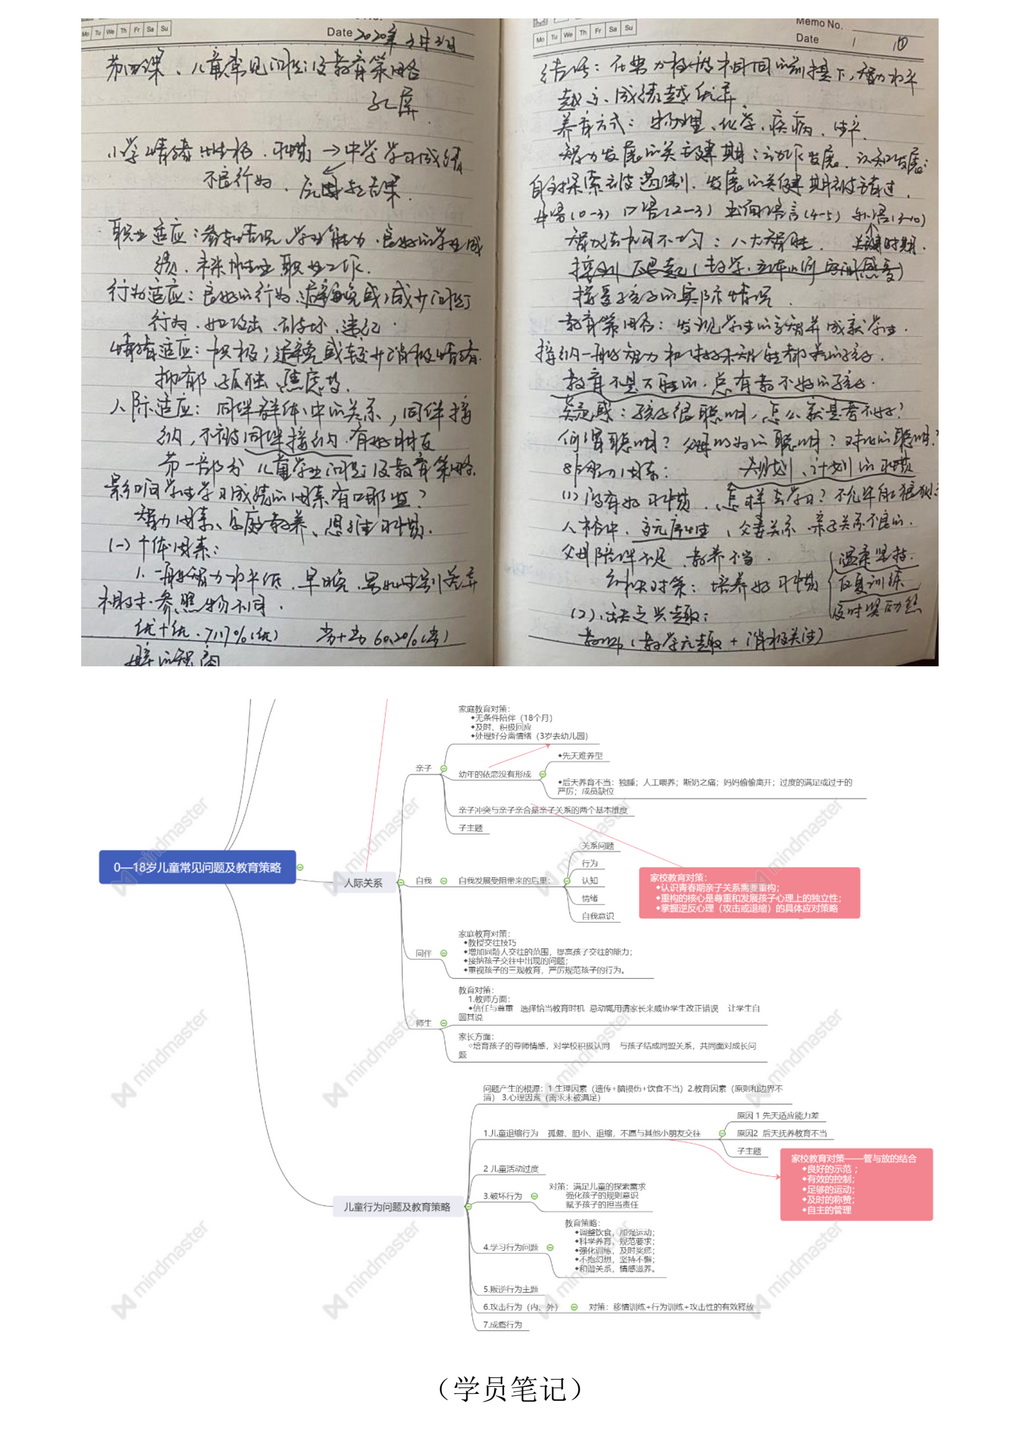 Mo Tu We Th Fr Sa Su
Date 2020年3月31日
第四课、儿童常见问题及教育策略
孔屏
小学情绪 性格、习惯→中学学习成绩
不良行为、
职业适应:
良好的学业成
绩、
行为适应:良好的行为、避免或减少问题
行为、如攻击、
情绪适应:积极;避免或较少消极情绪、
抑郁、孤独、焦虑等
人际适应:同伴群体中的关系,同伴接
纳,不被同伴接纳、有好朋友
第一部分 儿童学业问题及教育策略
影响学生学习成绩的因素有哪些?
智力因素、家庭教养、思维习惯.
(一)个体因素:
1.一般智力水平低、早晚、
参照物不同.
优+优、71.7%(优)
劣+劣 60.20%(劣)
Memo No.
Mo Tu We Th Fr Sa Su
Date
结论:在努力程度相同的前提下,智力水平
越高、成绩越优异.
养育方式:物理、化学、疾病、
智力发展的关键期:动作发展、认知发展;
自我探索
发展的关键期被错过.
母语(0-3) 口语(2-3) 书面语言(4-5) 外语(8-10)
关键时期.
智力结构不均匀:八大智能.
接受孩子的实际情况.
教育策略:发现学生的
成就学生.
接纳一般智力
的孩子.
教育不是万能的.总有教不好的孩子.
疑惑:孩子很聪明,怎么就是学不好?
何谓聪明?
的聪明?
的聪明?
非智力因素:
无规划、计划的习惯
(1)没有好习惯、怎样去学习?
父母关系、亲子关系不良的.
父母陪伴不足、教养不当.
解决对策:培养好习惯
温柔坚持
反复训练
及时奖励
(2).缺乏兴趣:
教师(教学无趣+消极关注)
0—18岁儿童常见问题及教育策略
人际关系
亲子
家庭教育对策:
◆无条件陪伴(18个月)
◆及时、积极回应
◆处理好分离情绪(3岁去幼儿园)
幼年的依恋没有形成
◆先天难养型
◆后天养育不当:独睡;人工喂养;断奶之痛;妈妈偷偷离开;过度的满足或过于的
严厉;成员缺位
亲子冲突与亲子亲合是亲子关系的两个基本维度
子主题
自我
自我发展受阻带来的后果:
关系问题
行为
认知
情绪
自我意识
家校教育对策:
◆认识青春期亲子关系需要重构;
◆重构的核心是尊重和发展孩子心理上的独立性;
◆掌握逆反心理(攻击或退缩)的具体应对策略
同伴
家庭教育对策:
◆教授交往技巧
◆增加同龄人交往的范围,提高孩子交往的能力;
◆接纳孩子交往中出现的问题;
◆重视孩子的三观教育,严厉规范孩子的行为。
师生
教育对策:
1.教师方面:
◆信任与尊重 选择恰当教育时机 忌动辄用请家长来威协学生改正错误 让学生自
圆其说
家长方面:
○培育孩子的尊师情感,对学校积极认同 与孩子结成同盟关系,共同面对成长问
题
儿童行为问题及教育策略
问题产生的根源:1.生理因素(遗传+脑损伤+饮食不当) 2.教育因素(原则和边界不
清) 3.心理因素(需求未被满足)
1.儿童退缩行为 孤僻、胆小、退缩,不愿与其他小朋友交往
原因 1 先天适应能力差
原因2 后天抚养教育不当
子主题
家校教育对策——管与放的结合
◆良好的示范;
◆有效的控制;
◆足够的运动;
◆及时的称赞;
◆自主的管理
2 儿童活动过度
3.破坏行为
对策:满足儿童的探索需求
强化孩子的规则意识
赋予孩子的担当责任
4.学习行为问题
教育策略:
◆调整饮食,加强运动;
◆科学养育,规范要求;
◆强化训练,及时奖惩;
◆不抱幻想,坚持不懈;
◆和谐关系,情感滋养。
5.叛逆行为主题
6.攻击行为(内、外)
对策:移情训练+行为训练+攻击性的有效释放
7.成瘾行为
mindmaster
mindmaster
mindmaster
mindmaster
mindmaster
mindmaster
mindmaster
mindmaster
mindmaster
mindmaster
mindmaster
mindmaster
(学员笔记)